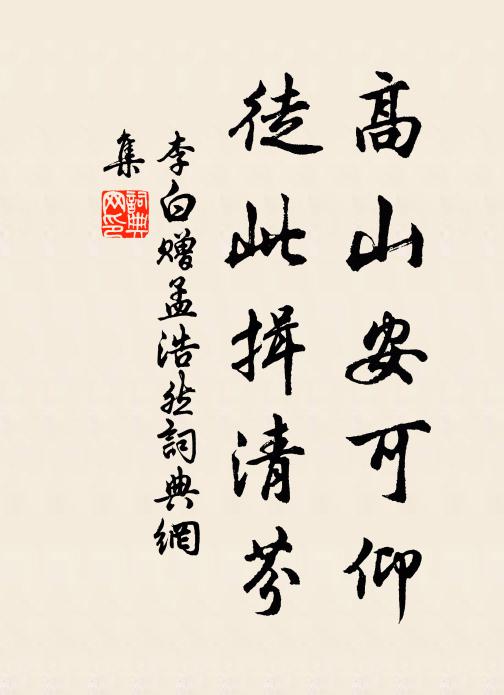 高山安可仰
徒此揖清芬
李白赠孟浩然詞典網
集
詞典
网印